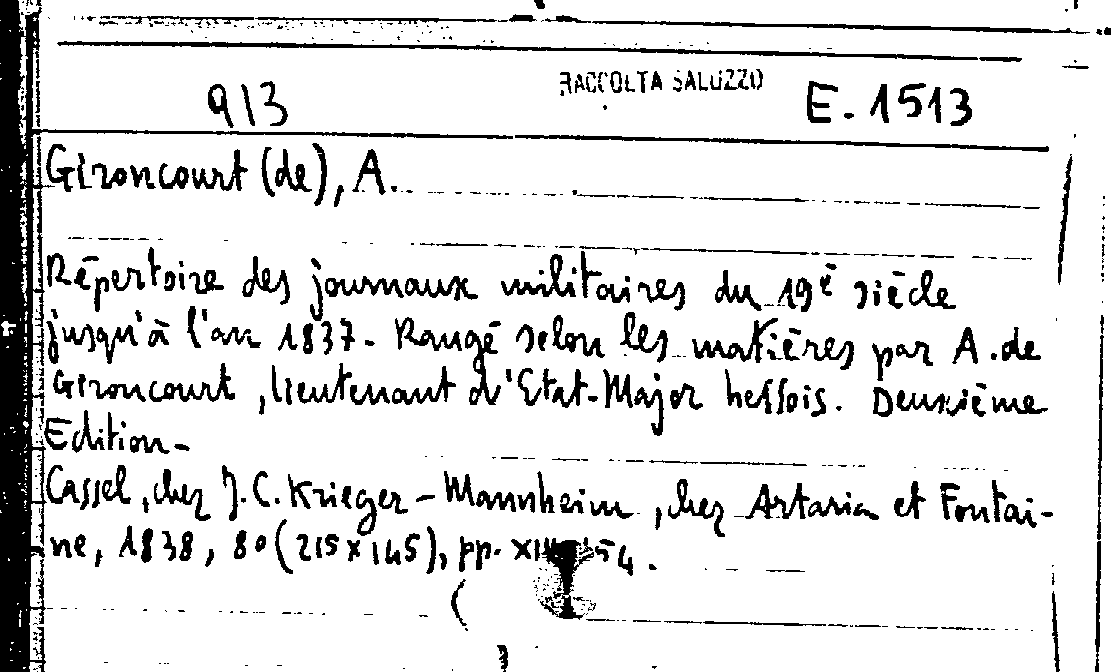 913 RACCOLTA SALUZZO E. 1513
Gironcourt (de), A.
Répertoire des journaux militaires du 19è siècle
jusqu'à l'an 1837. Rangé selon les matières par A. de
Gironcourt, lieutenant d'Etat-Major hessois. Deuxième
Edition-
Cassel, chez J.C. Krieger - Mannheim, chez Artaria et Fontai-
ne, 1838, 8° (215x145), pp.